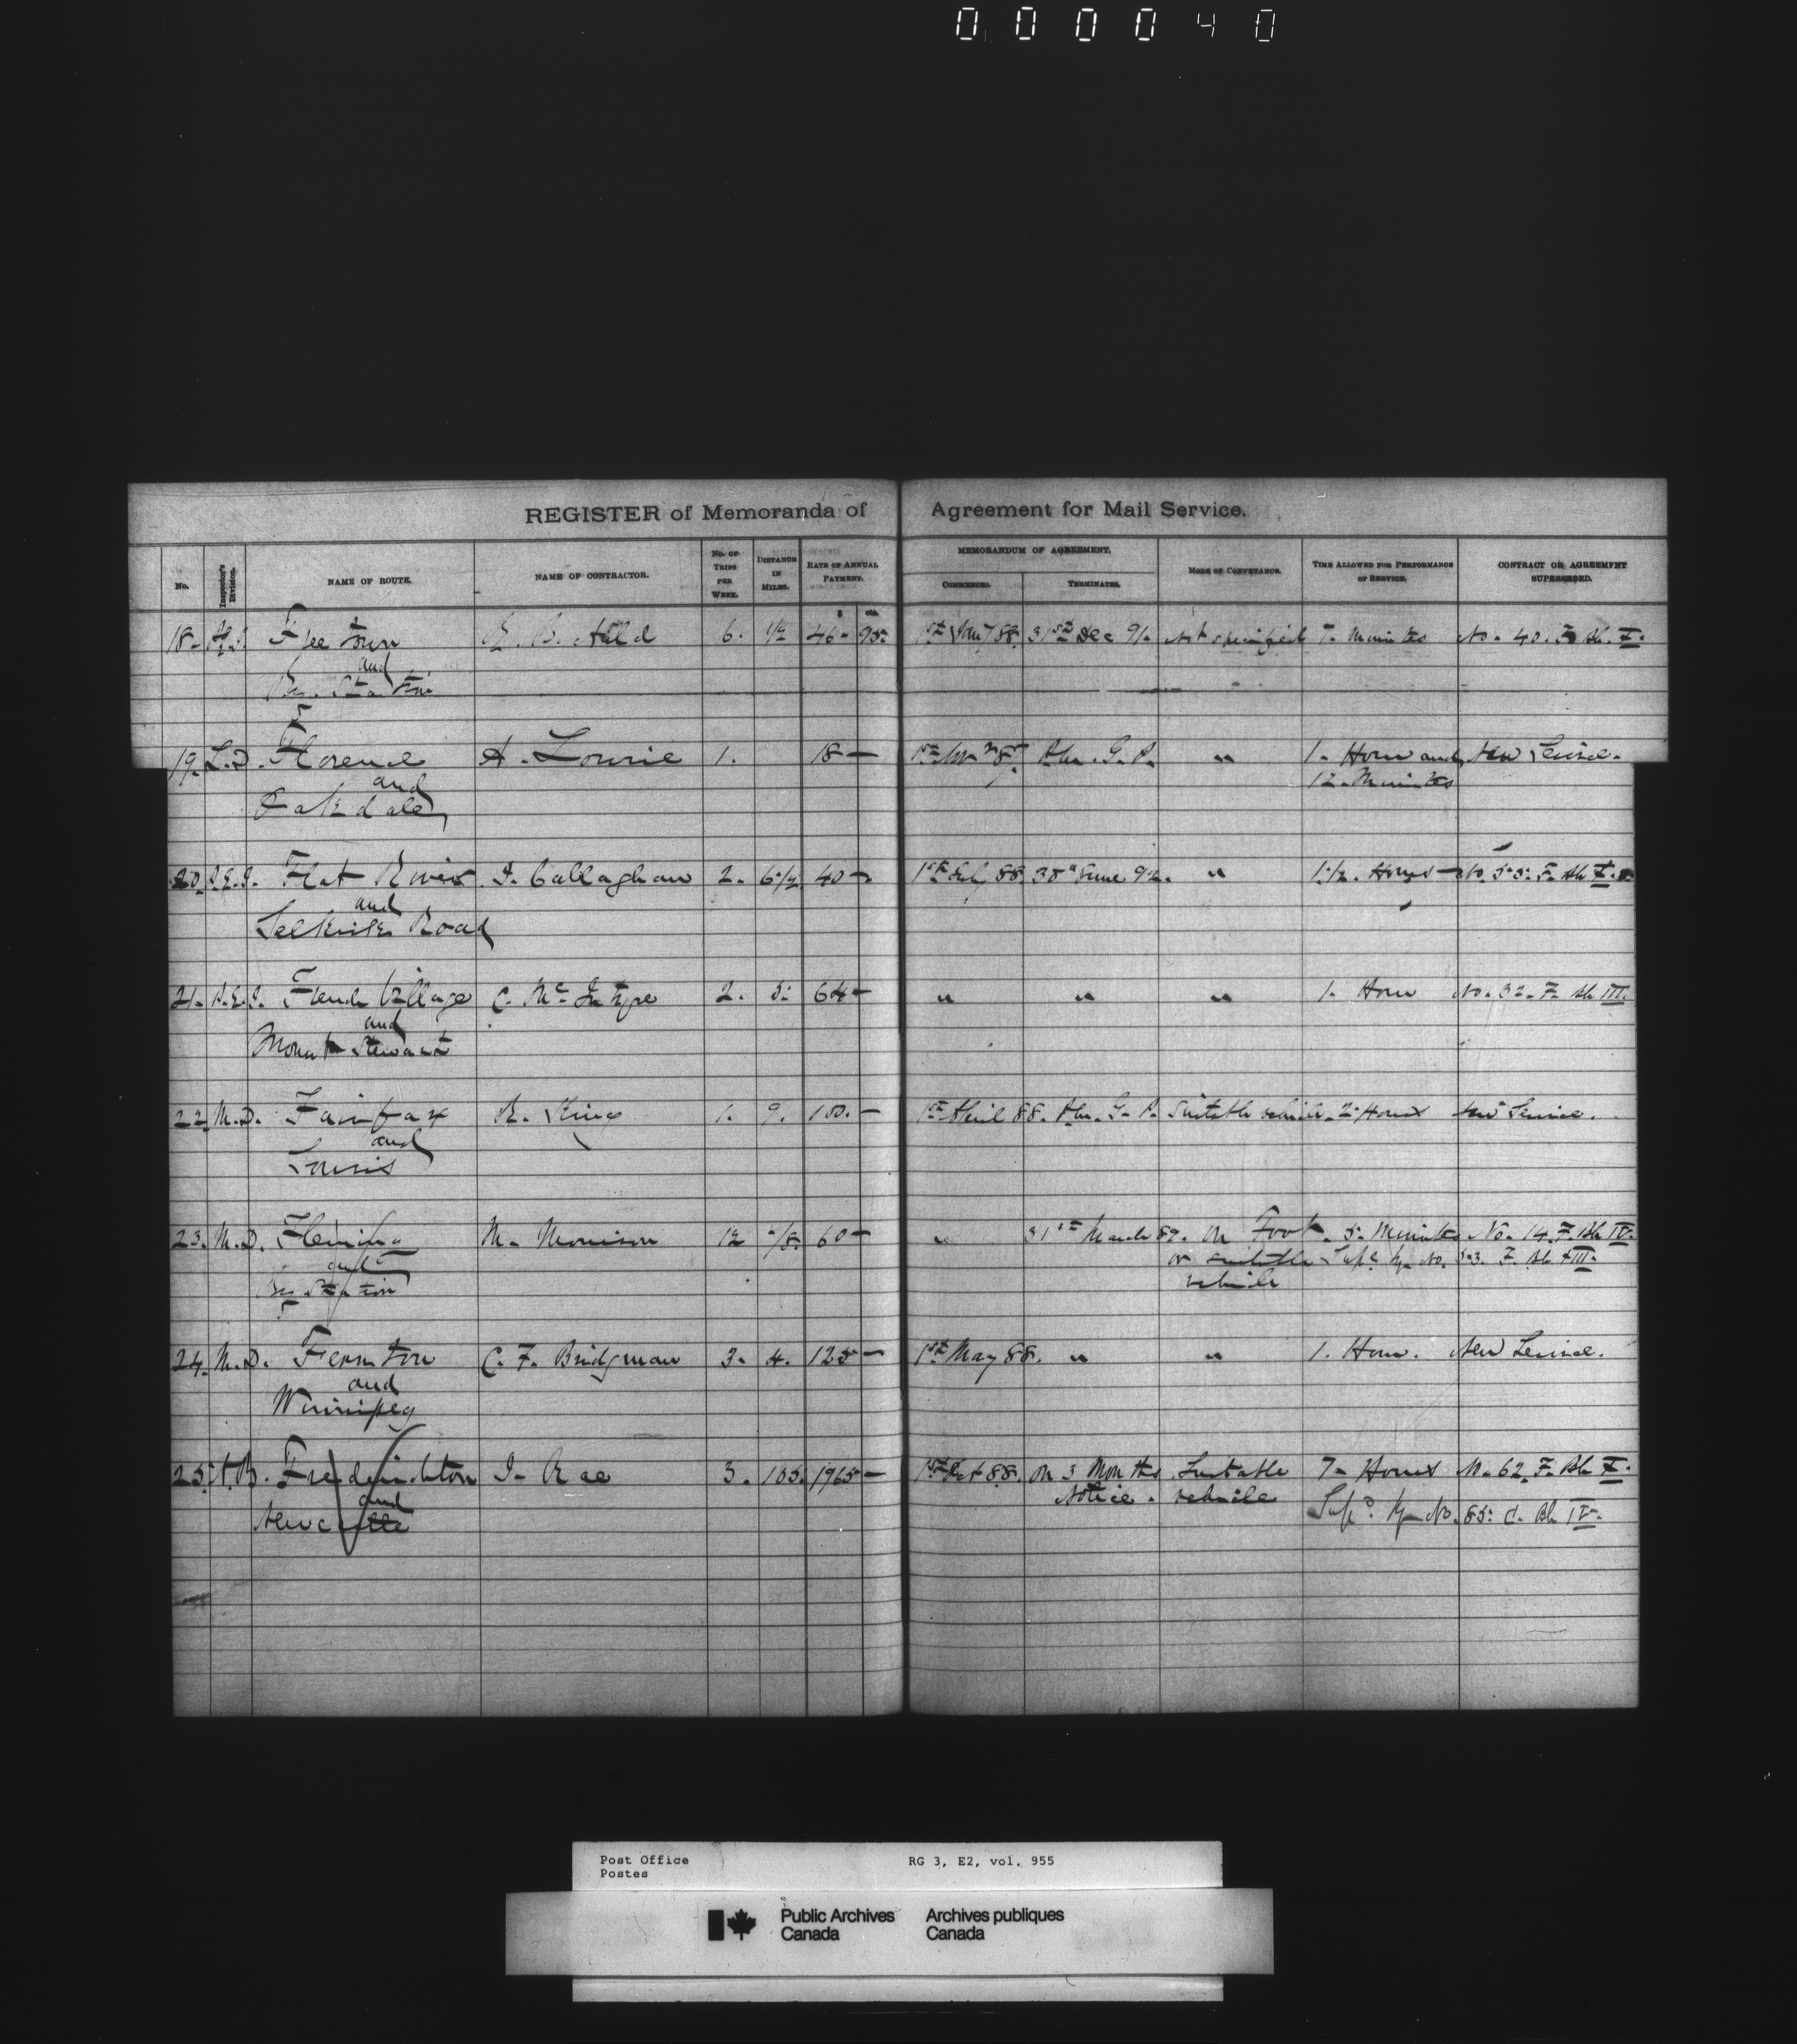 000040
REGISTER of Memoranda of Agreement for Mail Service.
No. Inspector's Division. NAME OF ROUTE. NAME OF CONTRACTOR. No. OF TRIPS PER WEEK. DISTANCE IN MILES. RATE OF ANNUAL PAYMENT. MEMORANDUM OF AGREEMENT. COMMENCES. TERMINATES. MODE OF CONVEYANCE. TIME ALLOWED FOR PERFORMANCE OF SERVICE. CONTRACT OR AGREEMENT SUPERSEDED.
$ cts.
18. Freetown 6. 1/2 46. 95. 1st Jany 88. 31st Dec 91. Not specified 7. Minutes No. 40. F. Bk. X.
and
Ry. Station
19. L.D. Florence A. Lowrie 1. 18 — Phr. G. P. " 1. Hour and New Service.
and 12. Minutes
Oakdale
20. P.E.I. Flat River J. Callaghan 2. 6 1/2 40 — 1st July 88. 30" June 92. " 1 1/2. Hours — No. 55. F. Bk X.
and
Selkirk Road
21. P.E.I. French Village C. McIntyre 2. 5. 64 — " " " 1. Hour No. 32. F. Bk III.
and
Mount Stewart
22. M.D. Fairfax R. King 1. 9. 100. — 1st April 88. Phr. G. P. Suitable vehicle. 2. Hours New Service.
and
Souris
23. M.D. Fleming M. Morrison 12 1/8. 60 — " 31st March 89. On Foot. 5. Minutes No. 14. F. Bk IV.
and or suitable Supd. by No. 53. F. Bk XIII.
Ry Station vehicle
24. M.D. Fernton C. F. Bridgman 3. 4. 125 — 1st May 88. " " 1. Hour. New Service.
and
Winnipeg
25. N.B. Fredericton J. Rae 3. 105. 1965 — 1st Oct 88. On 3 Months Suitable 7. Hours No. 62. F. Bk X.
and Notice. vehicle
Newcastle Supd. by No. 85. C. Bk IV.
Post Office RG 3, E2, vol. 955
Postes
Public Archives Archives publiques
Canada Canada